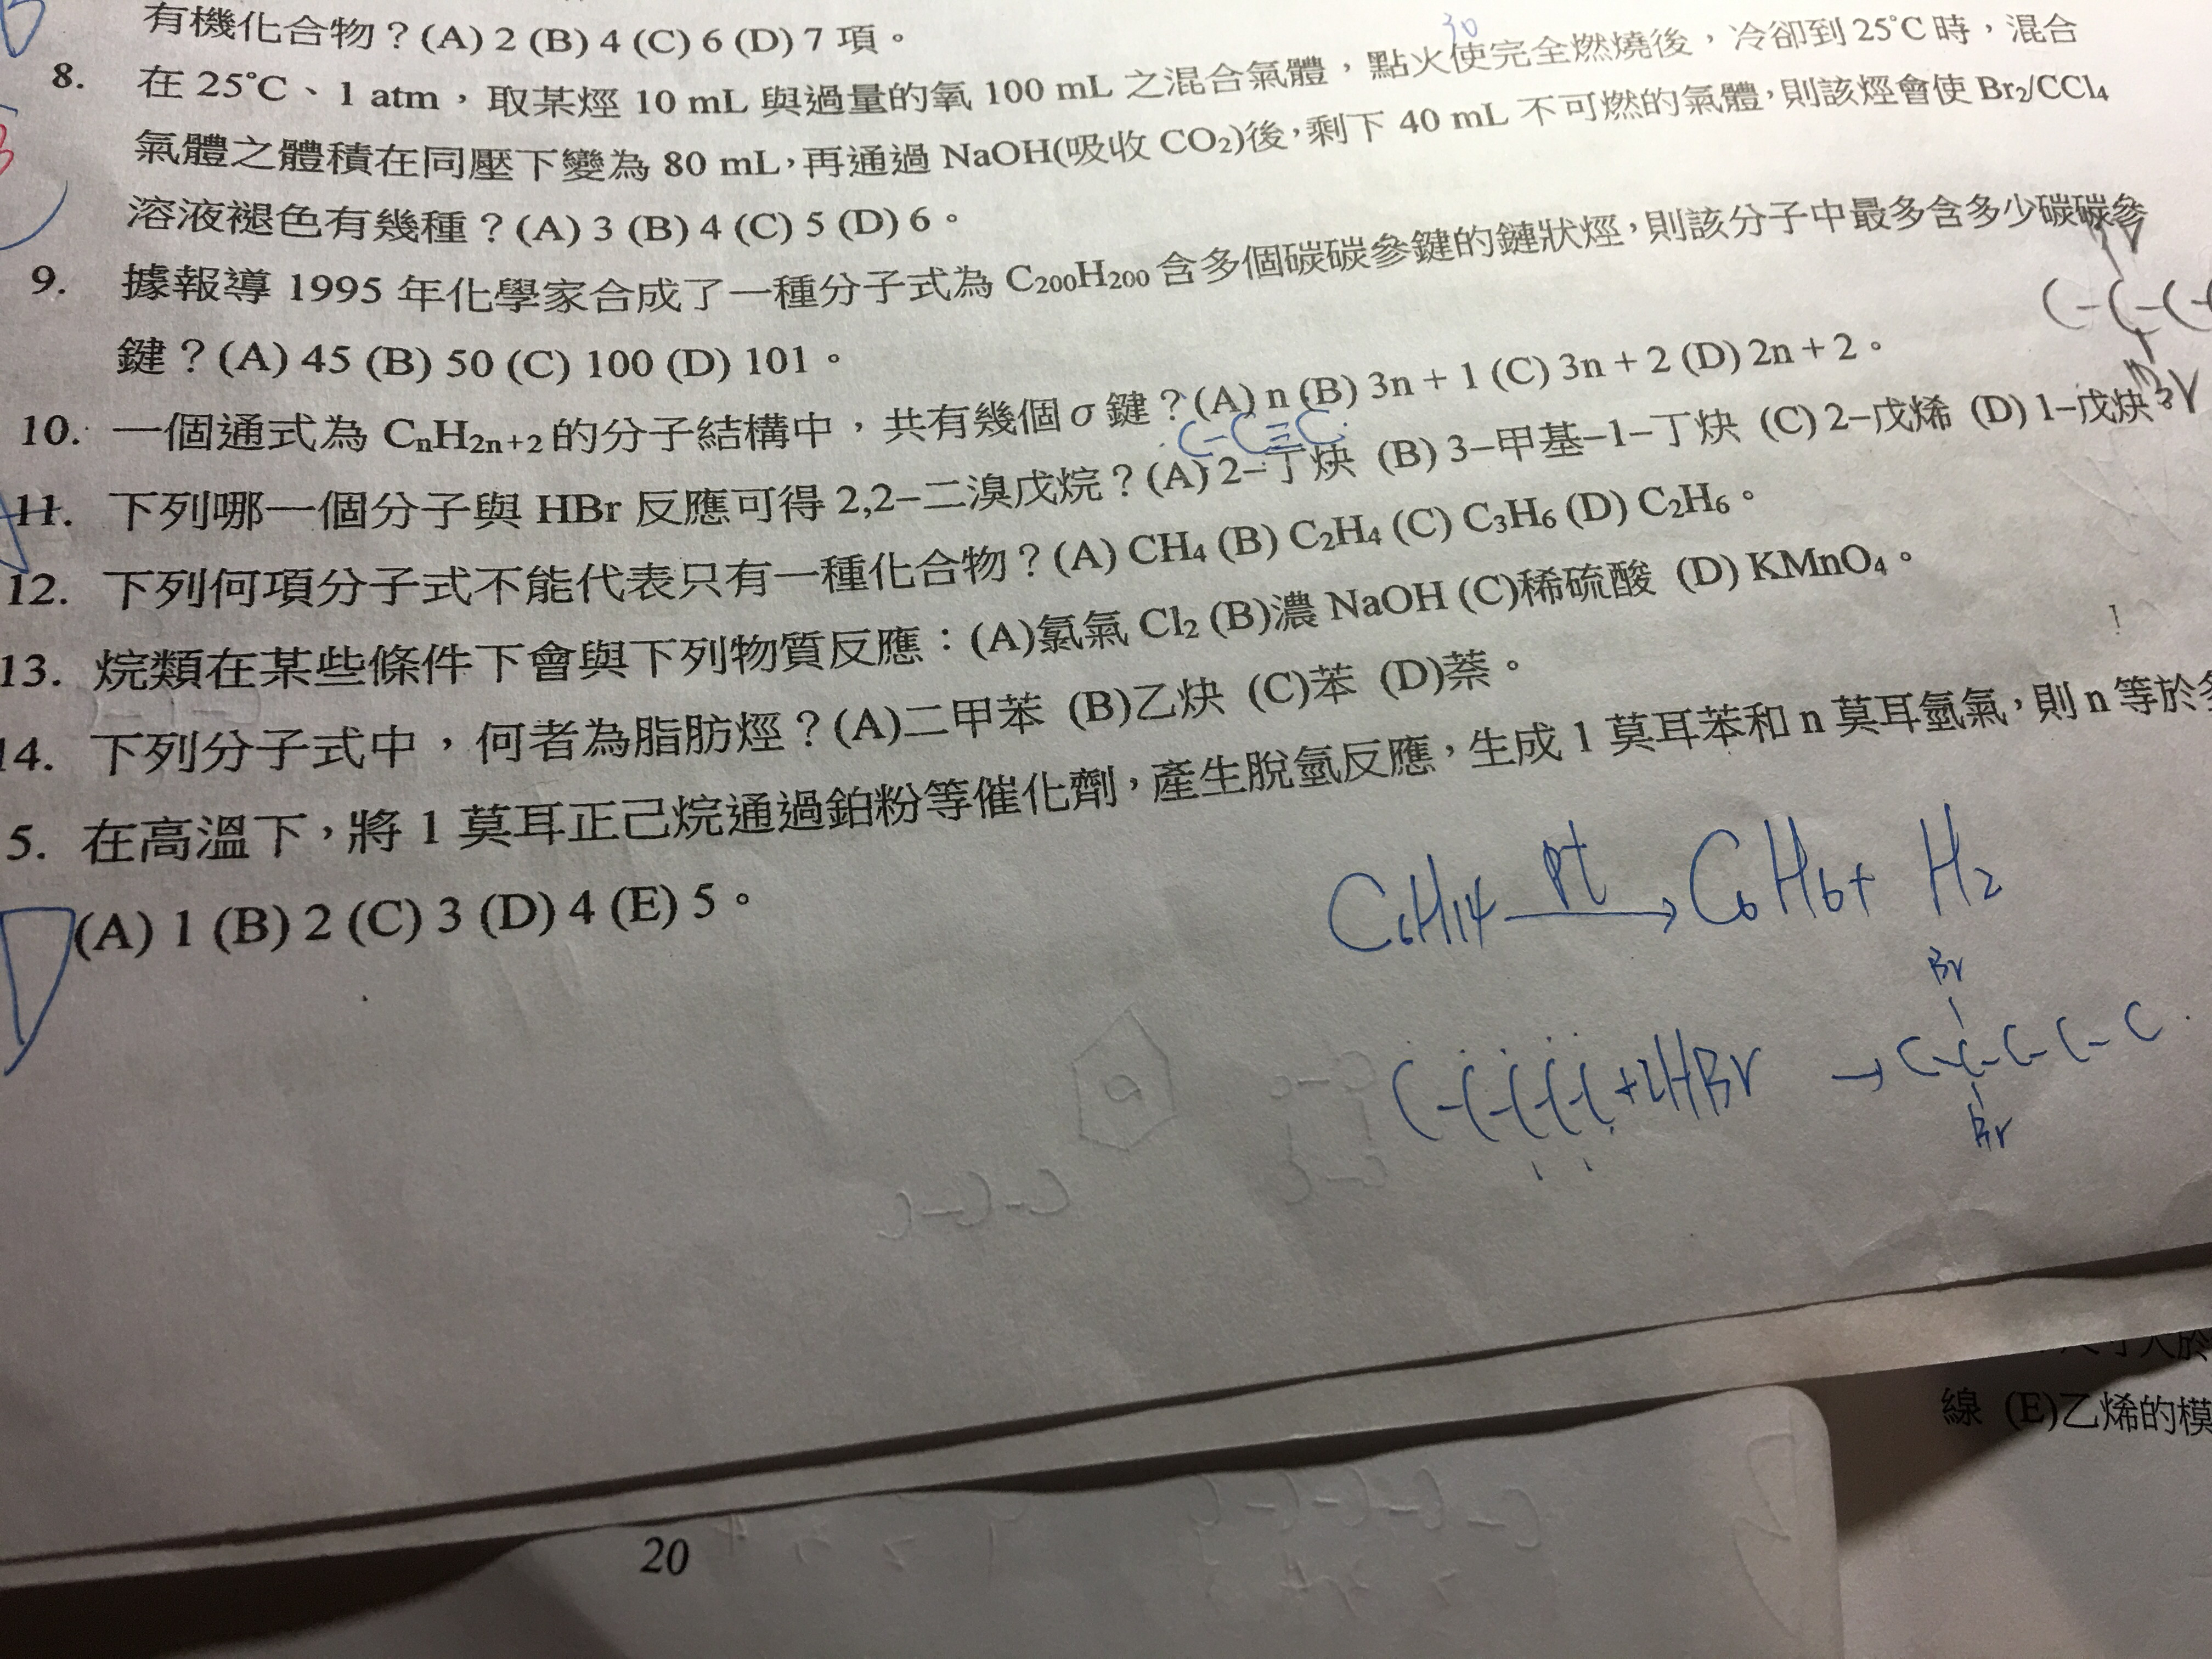 有機化合物？(A) 2 (B) 4 (C) 6 (D) 7 項。
30
8. 在 25°C、1 atm，取某烴 10 mL 與過量的氧 100 mL 之混合氣體，點火使完全燃燒後，冷卻到 25°C 時，混合
氣體之體積在同壓下變為 80 mL，再通過 NaOH(吸收 CO₂)後，剩下 40 mL 不可燃的氣體，則該烴會使 Br₂/CCl₄
溶液褪色有幾種？(A) 3 (B) 4 (C) 5 (D) 6。
9. 據報導 1995 年化學家合成了一種分子式為 C₂₀₀H₂₀₀ 含多個碳碳參鍵的鏈狀烴，則該分子中最多含多少碳碳參
鍵？(A) 45 (B) 50 (C) 100 (D) 101。
C-C-C-C
10. 一個通式為 CₙH₂ₙ₊₂ 的分子結構中，共有幾個 σ 鍵？(A) n (B) 3n + 1 (C) 3n + 2 (D) 2n + 2。
C-C≡C
11. 下列哪一個分子與 HBr 反應可得 2,2-二溴戊烷？(A) 2-丁炔 (B) 3-甲基-1-丁炔 (C) 2-戊烯 (D) 1-戊炔
12. 下列何項分子式不能代表只有一種化合物？(A) CH₄ (B) C₂H₄ (C) C₃H₆ (D) C₂H₆。
13. 烷類在某些條件下會與下列物質反應：(A)氯氣 Cl₂ (B)濃 NaOH (C)稀硫酸 (D) KMnO₄。
14. 下列分子式中，何者為脂肪烴？(A)二甲苯 (B)乙炔 (C)苯 (D)萘。
5. 在高溫下，將 1 莫耳正己烷通過鉑粉等催化劑，產生脫氫反應，生成 1 莫耳苯和 n 莫耳氫氣，則 n 等於
(A) 1 (B) 2 (C) 3 (D) 4 (E) 5。
C₆H₁₄ Pt→ C₆H₆ + H₂
Br
C-C-C-C-C + 2HBr → C-C-C-C-C
Br
線 (E)乙烯的模
20